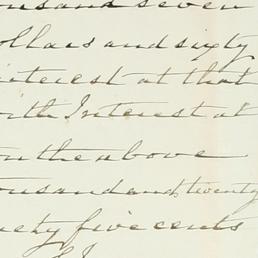 ousand seven
ollars and sixty
interest at that
ith Interest at
on the above
ousand and twenty
nety five cents